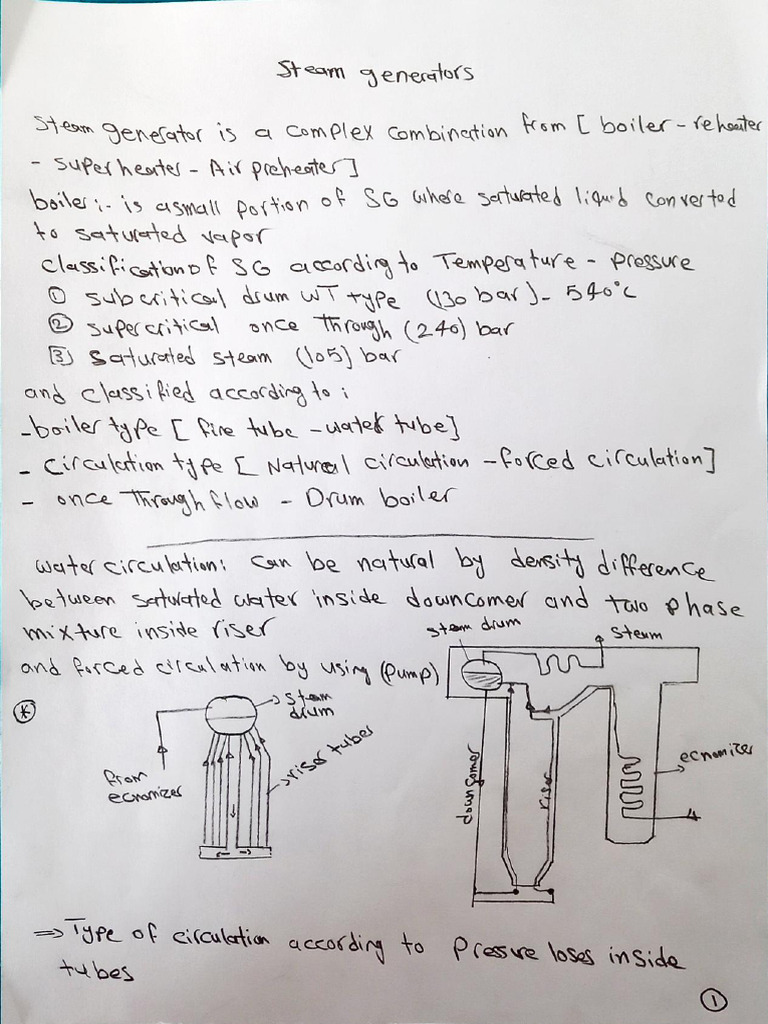 Steam generators
Steam generator is a complex combination from [ boiler - reheater
- superheater - Air preheater ]
boiler :- is a small portion of SG where saturated liquid converted
to saturated vapor
classification of SG according to Temperature - pressure
① subcritical drum WT type (130 bar) - 540°C
② supercritical once Through (240) bar
3 saturated steam (105) bar
and classified according to :
- boiler type [ fire tube - water tube ]
- circulation type [ Natural circulation - forced circulation ]
- once Through flow - Drum boiler
water circulation: can be natural by density difference
between saturated water inside downcomer and two phase
mixture inside riser
and forced circulation by using (pump)
steam drum
steam
*
steam
drum
riser tubes
from
ecnomizer
downcomer
riser
ecnomizer
⇒ Type of circulation according to pressure loses inside
tubes
①